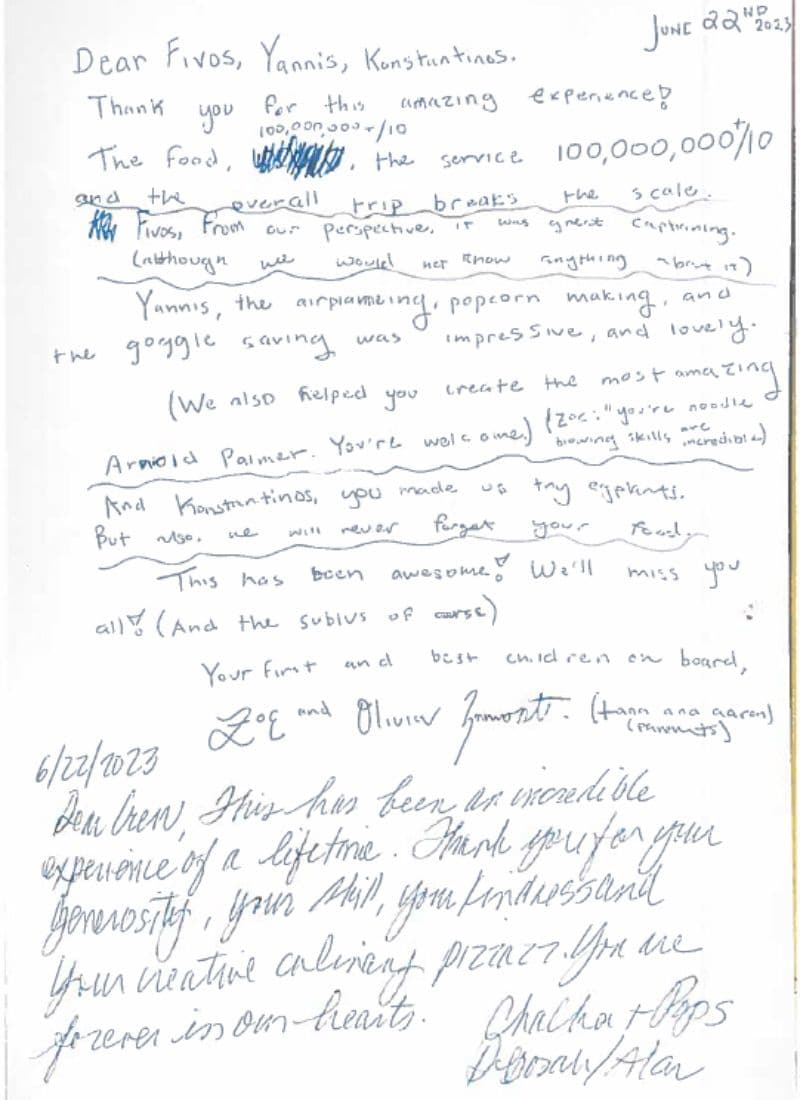 JUNE 22ND 2023
Dear Fivos, Yannis, Konstantinos.
Thank you for this amazing experience!
100,000,000+/10
The food, , the service 100,000,000+/10
and the overall trip breaks the scale.
Fivos, From our perspective, it was great captaining.
(although we would not know anything about it)
Yannis, the airplaneing, popcorn making, and
the goggle saving was impressive, and lovely.
(We also helped you create the most amazing
Arnold Palmer. You're welcome.) (Zoe: "you're noodle
blowing skills are incredible)
And Konstantinos, you made us try egplants.
But also, we will never forget your food.
This has been awesome! We'll miss you
all! (And the subius of corse)
Your first and best children on board,
Zoë and Olivier (tann and aaron)
(parents)
6/22/2023
Dear Crew, This has been an incredible
experience of a lifetime. Thank you for your
generosity, your skill, your kindness and
your creative culinary pizzazz. You are
forever in our hearts.
ChaCha + Pops
Deborah/Alan